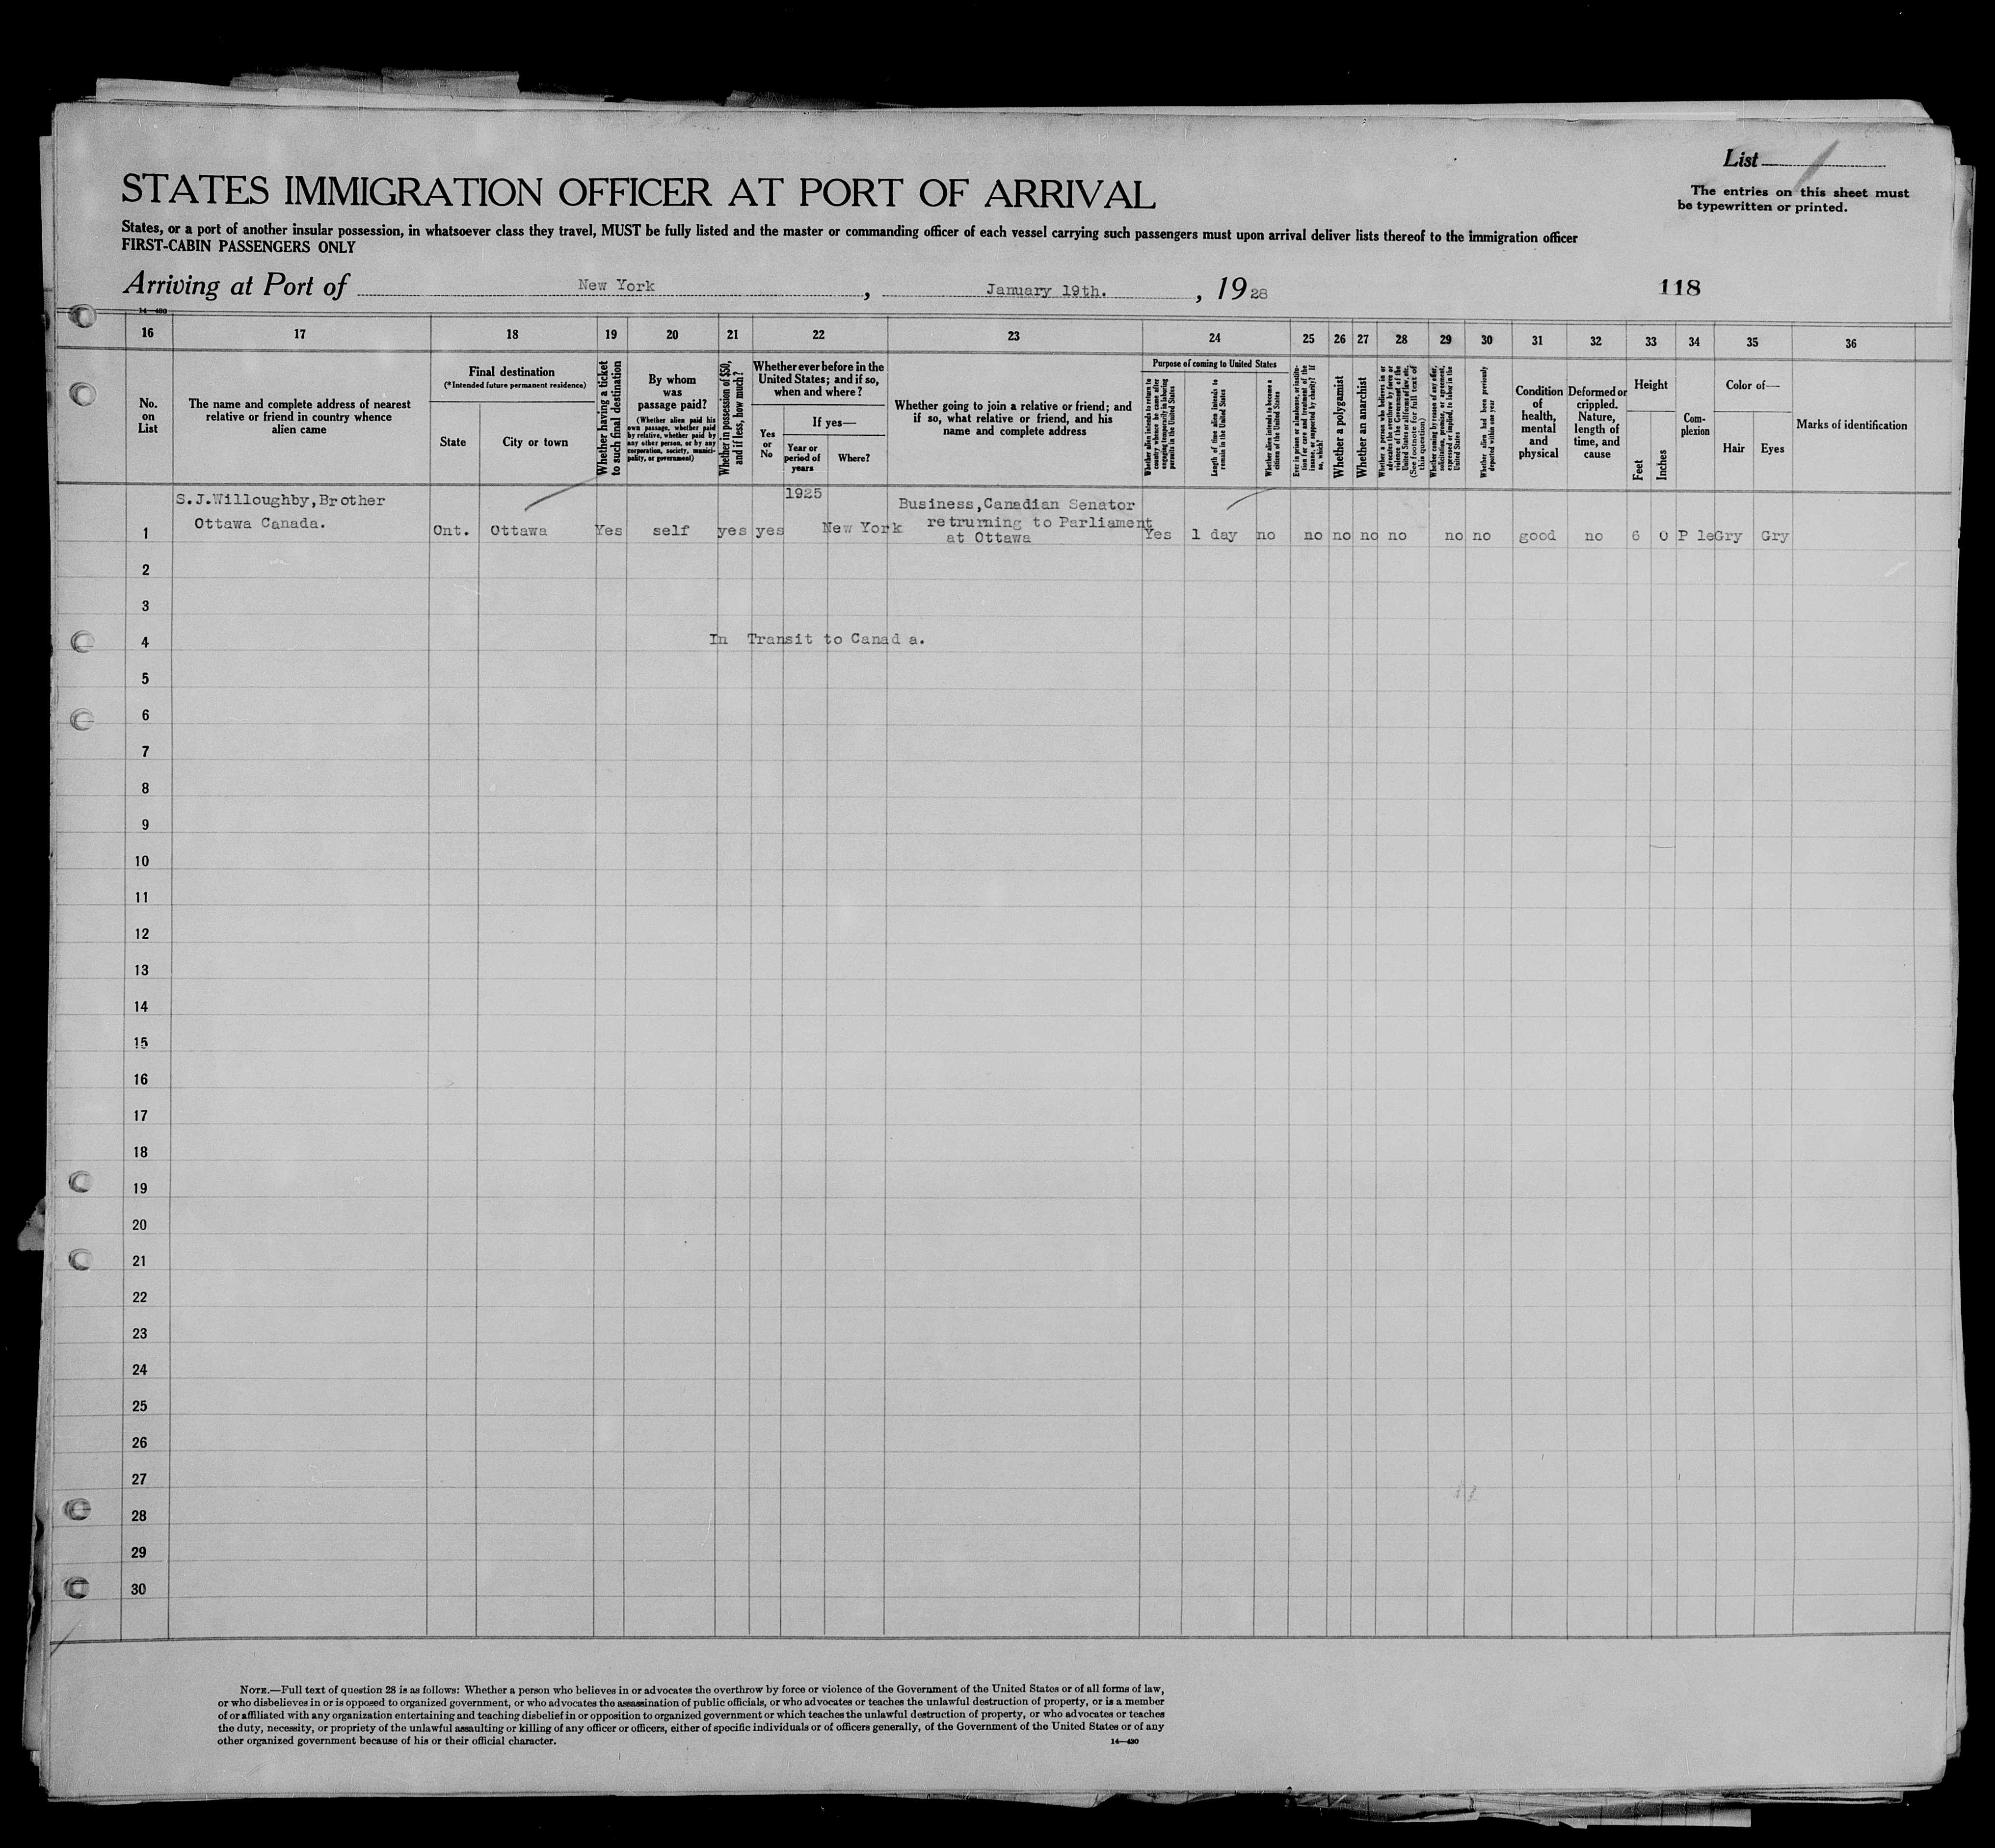 List 1
The entries on this sheet must
be typewritten or printed.
STATES IMMIGRATION OFFICER AT PORT OF ARRIVAL
States, or a port of another insular possession, in whatsoever class they travel, MUST be fully listed and the master or commanding officer of each vessel carrying such passengers must upon arrival deliver lists thereof to the immigration officer
FIRST-CABIN PASSENGERS ONLY
Arriving at Port of New York, January 19th., 1928
118
14—430
16 17 18 19 20 21 22 23 24 25 26 27 28 29 30 31 32 33 34 35 36
No.
on
List
The name and complete address of nearest
relative or friend in country whence
alien came
Final destination
(*Intended future permanent residence)
State
City or town
Whether having a ticket
to such final destination
By whom
was
passage paid?
(Whether alien paid his
own passage, whether paid
by relative, whether paid by
any other person, or by any
corporation, society, munici-
pality, or government)
Whether in possession of $50,
and if less, how much?
Whether ever before in the
United States; and if so,
when and where?
Yes
or
No
If yes—
Year or
period of
years
Where?
Whether going to join a relative or friend; and
if so, what relative or friend, and his
name and complete address
Purpose of coming to United States
Whether alien intends to return to
country whence he came after
engaging temporarily in laboring
pursuits in the United States
Length of time alien intends to
remain in the United States
Whether alien intends to become a
citizen of the United States
Ever in prison or almshouse, or institu-
tion for care and treatment of the
insane, or supported by charity? If
so, which?
Whether a polygamist
Whether an anarchist
Whether a person who believes in or
advocates the overthrow by force or
violence of the Government of the
United States or all forms of law, etc.
(See footnote for full text of
this question)
Whether coming by reason of any offer,
solicitation, promise, or agreement,
expressed or implied, to labor in the
United States
Whether alien had been previously
deported within one year
Condition
of
health,
mental
and
physical
Deformed or
crippled.
Nature,
length of
time, and
cause
Height
Feet
Inches
Com-
plexion
Color of—
Hair
Eyes
Marks of identification
S.J.Willoughby,Brother
Ottawa Canada.
1 Ont. Ottawa Yes self yes yes 1925 New York
Business,Canadian Senator
retrurning to Parliament
at Ottawa
Yes 1 day no no no no no no no good no 6 0 P le Gry Gry
2
3
4 In Transit to Canad a.
5
6
7
8
9
10
11
12
13
14
15
16
17
18
19
20
21
22
23
24
25
26
27
28
29
30
NOTE.—Full text of question 28 is as follows: Whether a person who believes in or advocates the overthrow by force or violence of the Government of the United States or of all forms of law,
or who disbelieves in or is opposed to organized government, or who advocates the assassination of public officials, or who advocates or teaches the unlawful destruction of property, or is a member
of or affiliated with any organization entertaining and teaching disbelief in or opposition to organized government or which teaches the unlawful destruction of property, or who advocates or teaches
the duty, necessity, or propriety of the unlawful assaulting or killing of any officer or officers, either of specific individuals or of officers generally, of the Government of the United States or of any
other organized government because of his or their official character.
14—430